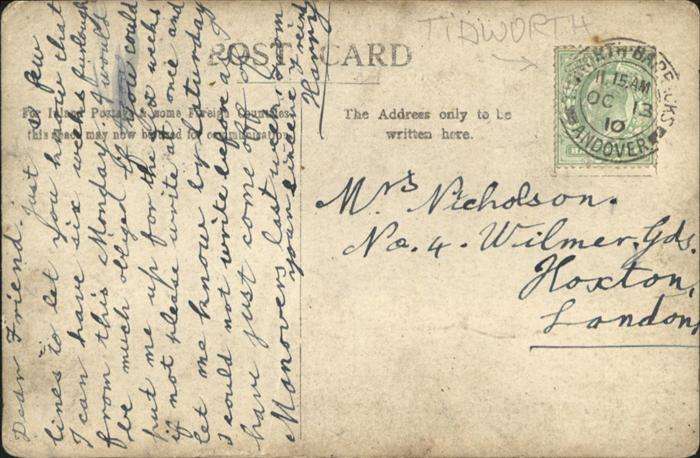 TIDWORTH
POST CARD
For Inland Postage & some Foreign Countries
this space may now be used for communication
The Address only to be
written here.
NORTH BARRACKS
11.15AM
OC 13
10
ANDOVER
Mrs Nicholson.
No. 4. Wilmer. Gds.
Hoxton,
London,
Dear Friend just a few
lines to let you know that
I can have six weeks furlough
from this Monday & I would
be much obliged if you could
put me up for the six weeks
if not please write at once and
let me know by Saturday
I could not write before as I
have just come off of
Manovers last week from
your sincere Friend
Harry